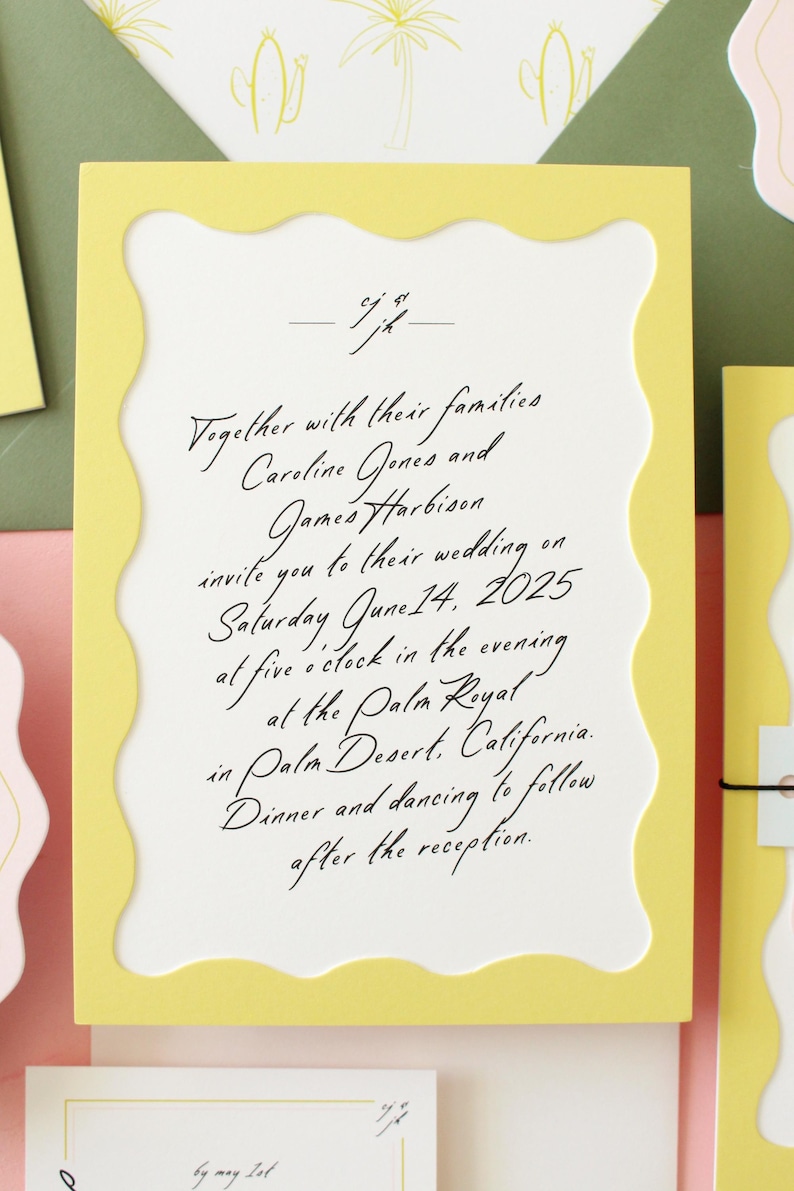 cj &
jh
Together with their families
Caroline Jones and
James Harbison
invite you to their wedding on
Saturday June 14, 2025
at five o'clock in the evening
at the Palm Royal
in Palm Desert, California.
Dinner and dancing to follow
after the reception.
cj &
jh
by may 1st